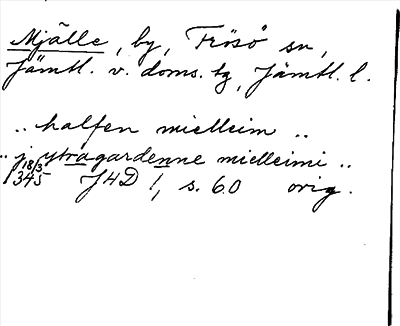 Mjälle, by, Frösö sn,
Jämtl. v. doms. tg, Jämtl. l.
.. halfen mielleim ..
.. j ytragardenne mielleimi ..
18/3
1345 JHD 1, s. 60 orig.